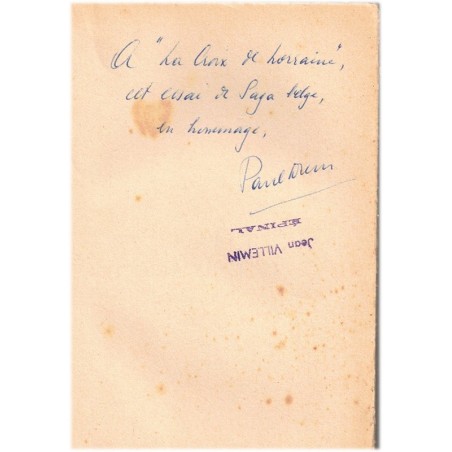 A "La Croix de Lorraine",
cet essai de Saga belge,
en hommage,
Paul
Jean VILLEMIN
ÉPINAL